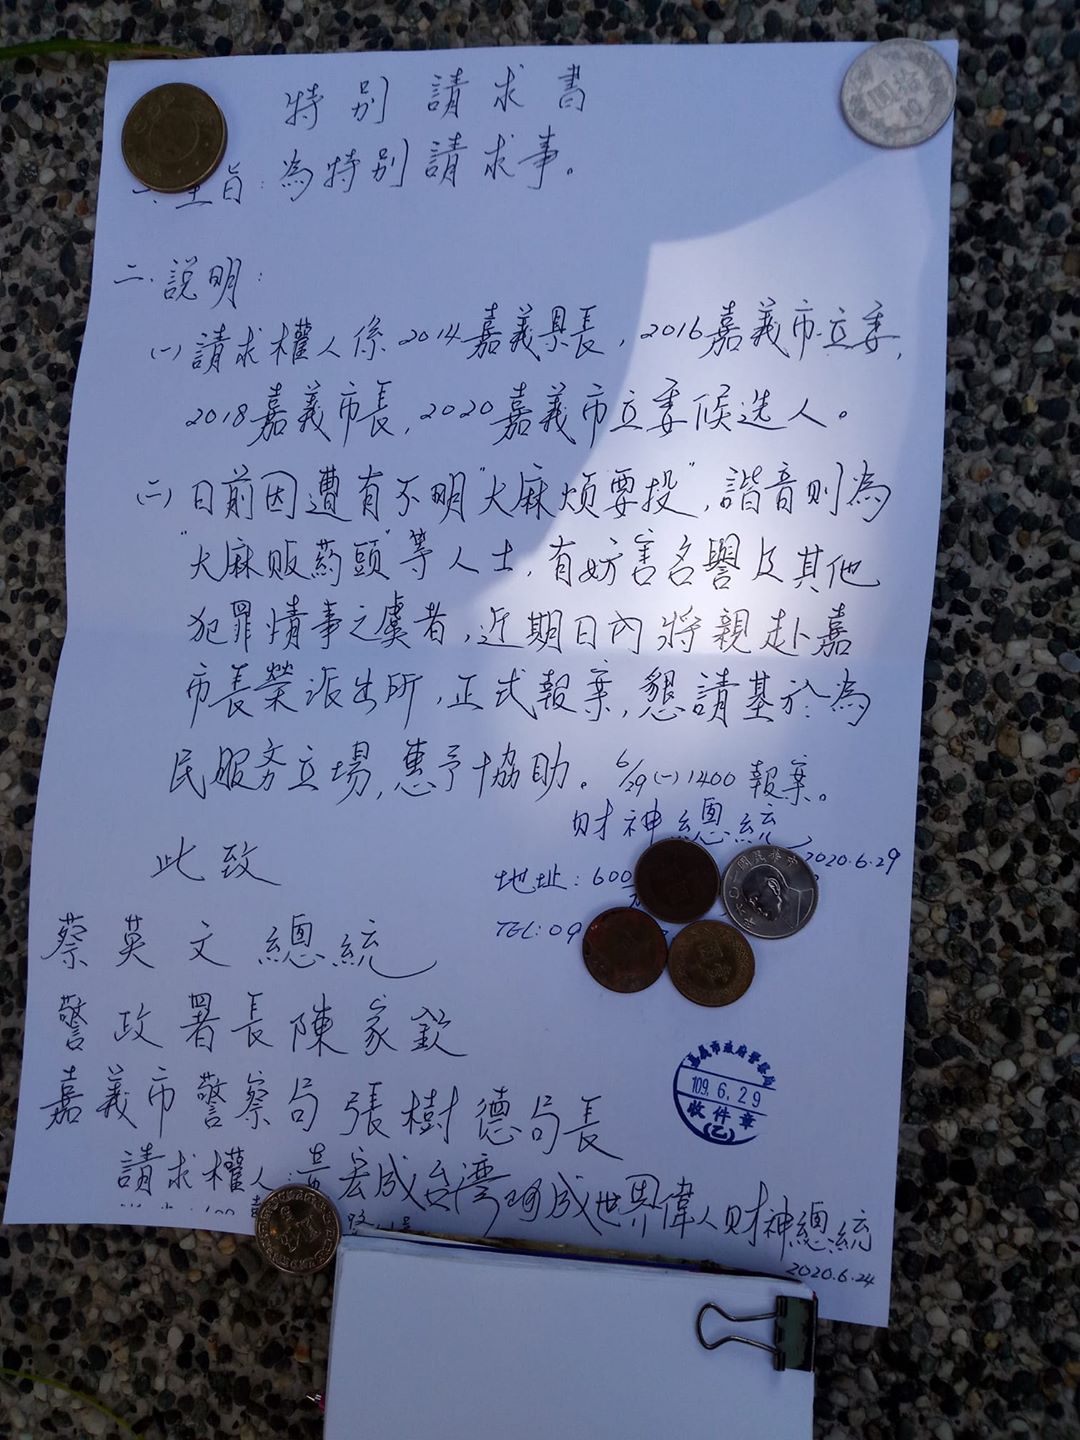 特別請求書
一.主旨:為特別請求事。
二.說明:
(一)請求權人係2014嘉義県長,2016嘉義市立委,
2018嘉義市長,2020嘉義市立委候选人。
(二)日前因遭有不明"大麻煩要投",諧音則為
"大麻販药頭"等人士,有妨害名譽及其他
犯罪情事之虞者,近期日內將親赴嘉
市長榮派出所,正式報案,懇請基於為
民服务立場,惠予協助。6/29(一)1400報案。
財神總統
2020.6.29
此致
地址:600
TEL:09
蔡英文總統
警政署長陳家欽
嘉義市警察局張樹德局長
嘉義市政府警察局
109.6.29
收件章
(乙)
請求權人:黃宏成台灣阿成世界偉人財神總統
2020.6.24